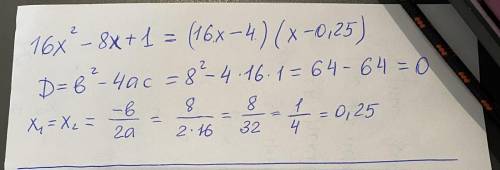 16x² - 8x + 1 = (16x - 4) (x - 0,25)
D = b² - 4ac = 8² - 4 · 16 · 1 = 64 - 64 = 0
x₁ = x₂ = -b/2a = 8/2·16 = 8/32 = 1/4 = 0,25